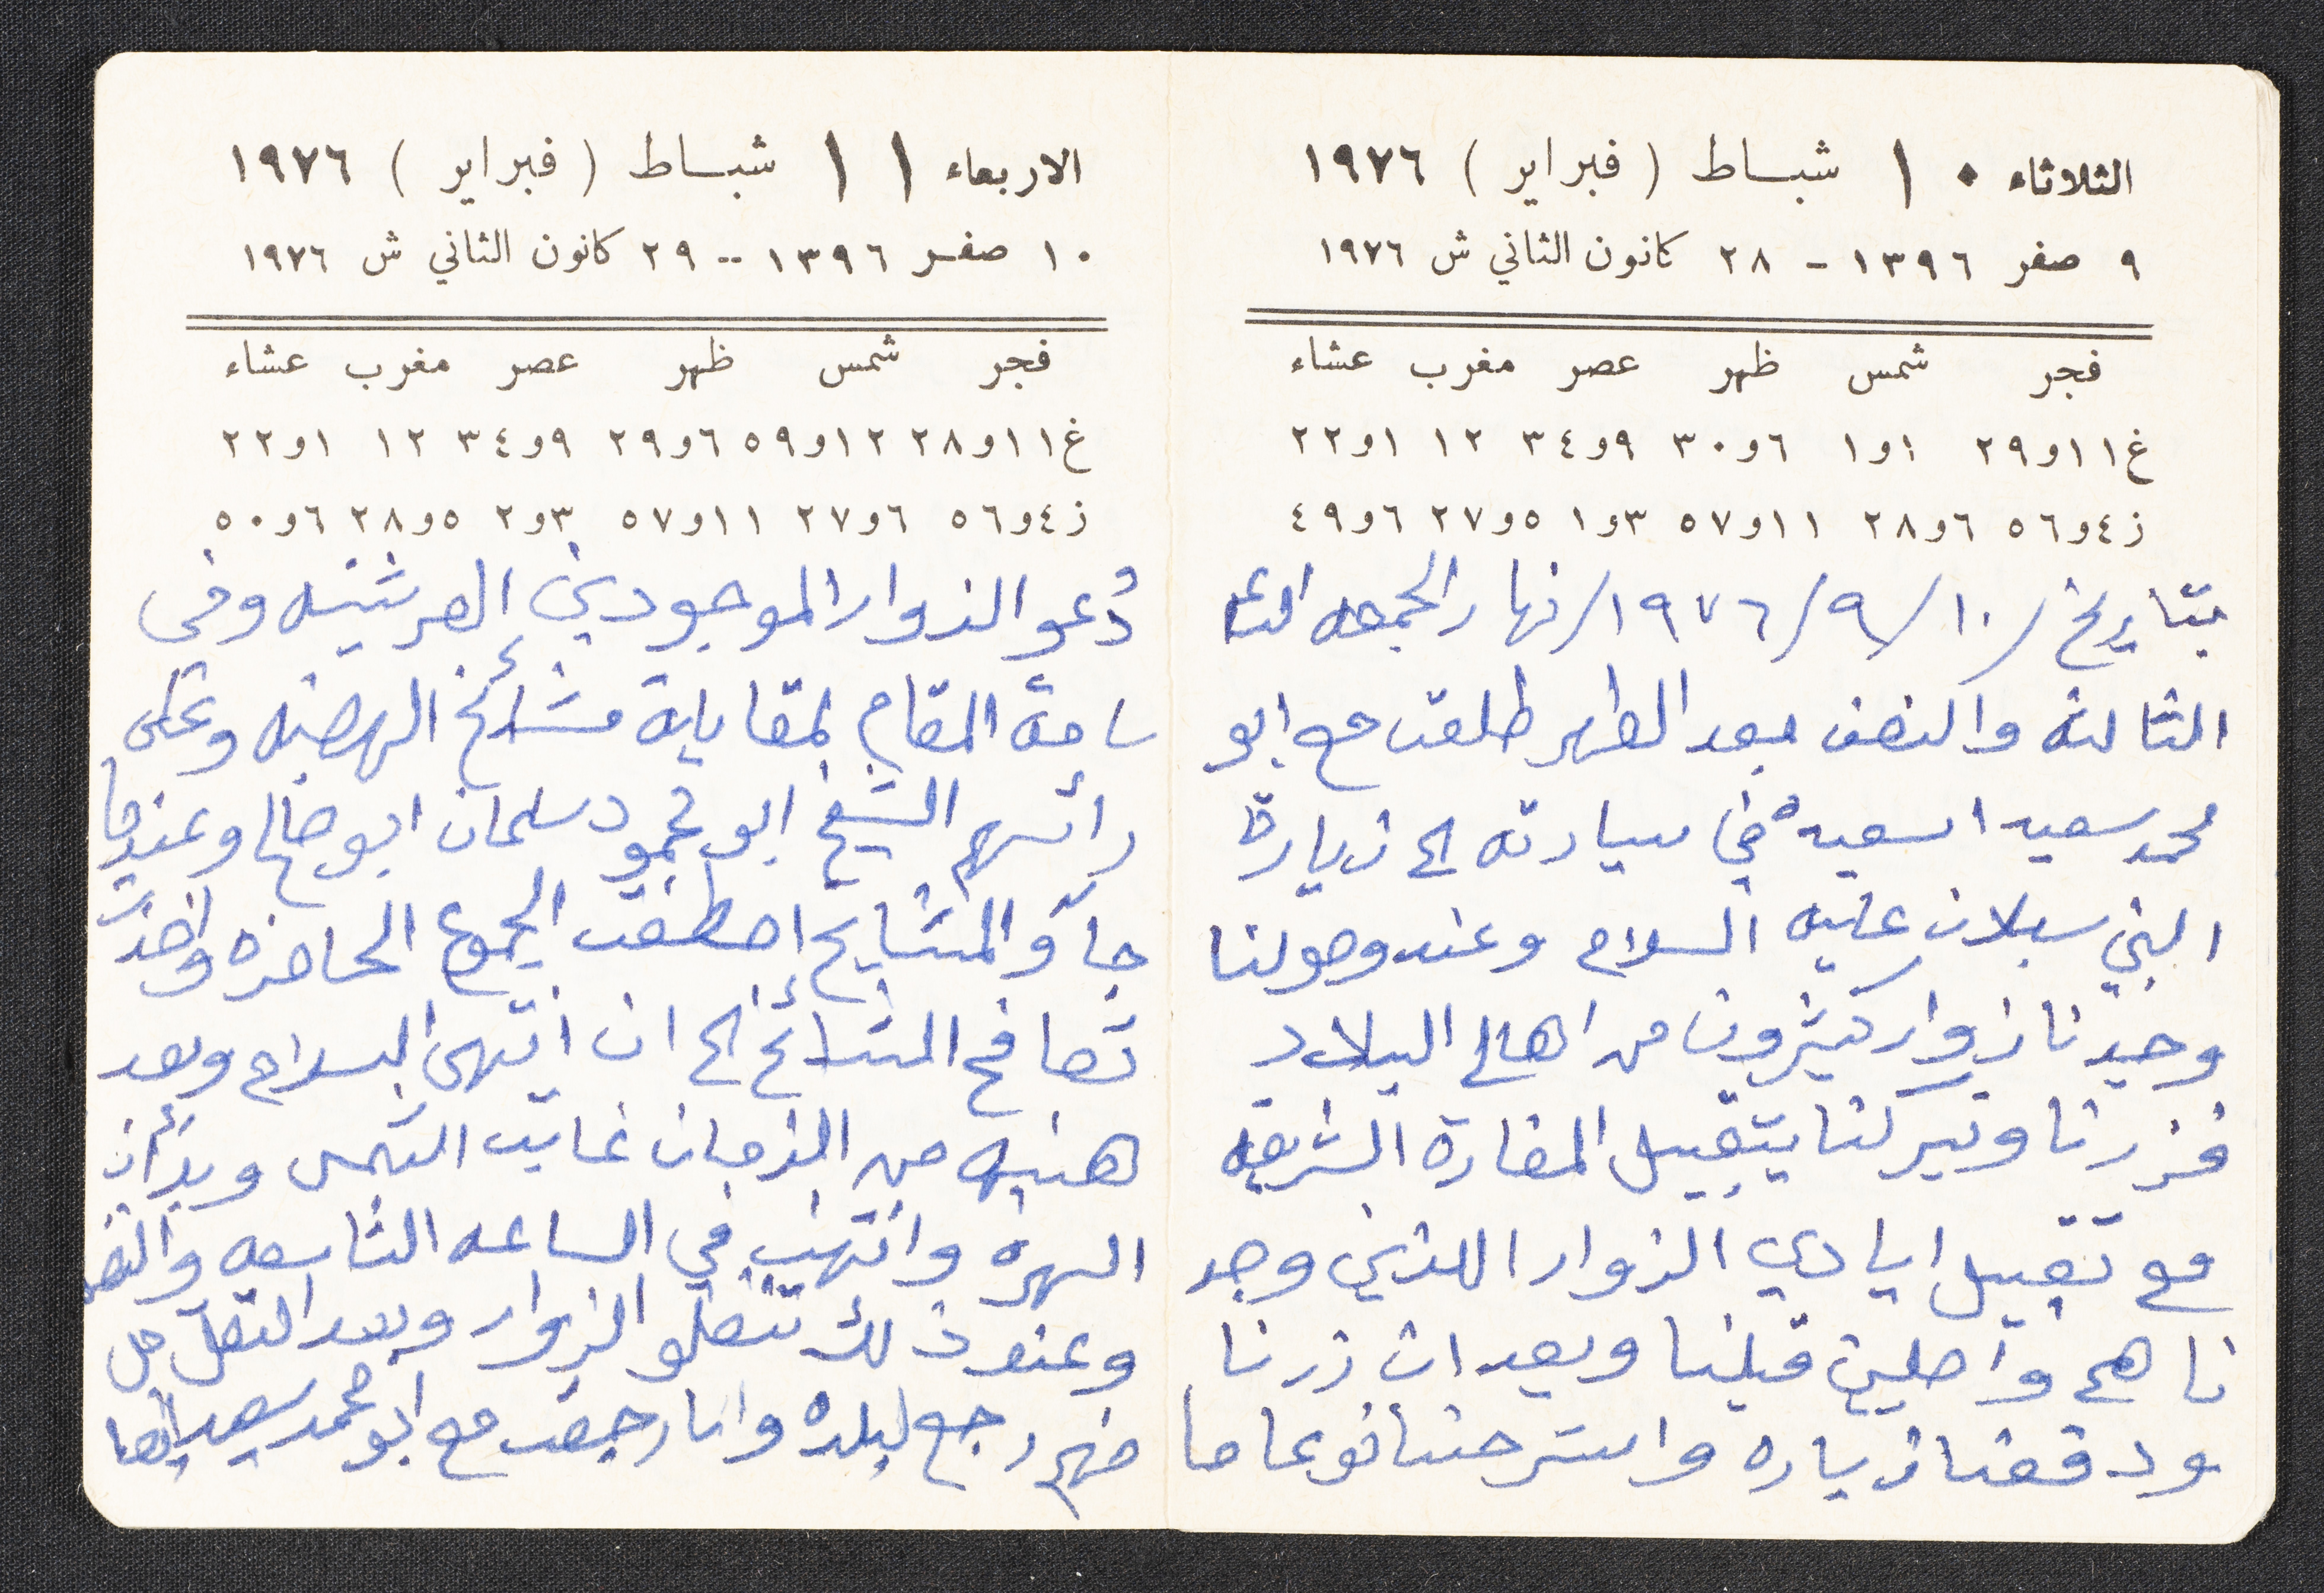 الثلاثاء ١٠ شباط ( فبراير ) ١٩٧٦
٩ صفر ١٣٩٦ - ٢٨ كانون الثاني ش ١٩٧٦
فجر شمس ظهر عصر مغرب عشاء
غ ١١و٢٩ ١و١ ٦و٣٠ ٩و٣٤ ١٢ ١و٢٢
ز ٤و٥٦ ٦و٢٨ ١١و٥٧ ٣و١ ٥و٢٧ ٦و٤٩
بتاريخ /١٠/٩/١٩٧٦/ نهار الجمعه
الثالثه والنصف بعد الظهر طلعت مع ابو
محمد سعيد اسعيد في سيارته الى زيارة
النبي سبلان عليه السلام وعند وصولنا
وجدنا زوار كثيرون من اهالي البلاد
فزرنا وتبركنا بتقبيل المغارة الشريفه
مع تقبيل ايادي الزوار اللذين وجد
نا هم واصلين قبلنا وبعد ان زرنا
ودفعنا زياره واسترحنا نوعا ما
الاربعاء ١١ شباط ( فبراير ) ١٩٧٦
١٠ صفر ١٣٩٦ -- ٢٩ كانون الثاني ش ١٩٧٦
فجر شمس ظهر عصر مغرب عشاء
غ ١١و٢٨ ١٢و٥٩ ٦و٢٩ ٩و٣٤ ١٢ ١و٢٢
ز ٤و٥٦ ٦و٢٧ ١١و٥٧ ٣و٢ ٥و٢٨ ٦و٥٠
دُعو الزوار الموجودين وفي
ساحة المقام لمقابلة مشائخ الهضبه وعلى
رائسهم الشيخ ابو محمود سلمان ابو صالح وعندما
جاؤ المشايخ إصطفت الجموع الحاضره واخذت
تصافح المشائخ الى ان انتهى السلام وبعد
هنيهه من الزمان غابت الشمس وبدأت
السهره وانتهت في الساعه التاسعه والنصف
وعند ذلك تنقلو الزوار وبعد النقل كل
منهم رجع لبلده وانا رجعت مع ابو محمد سعيد ايضا